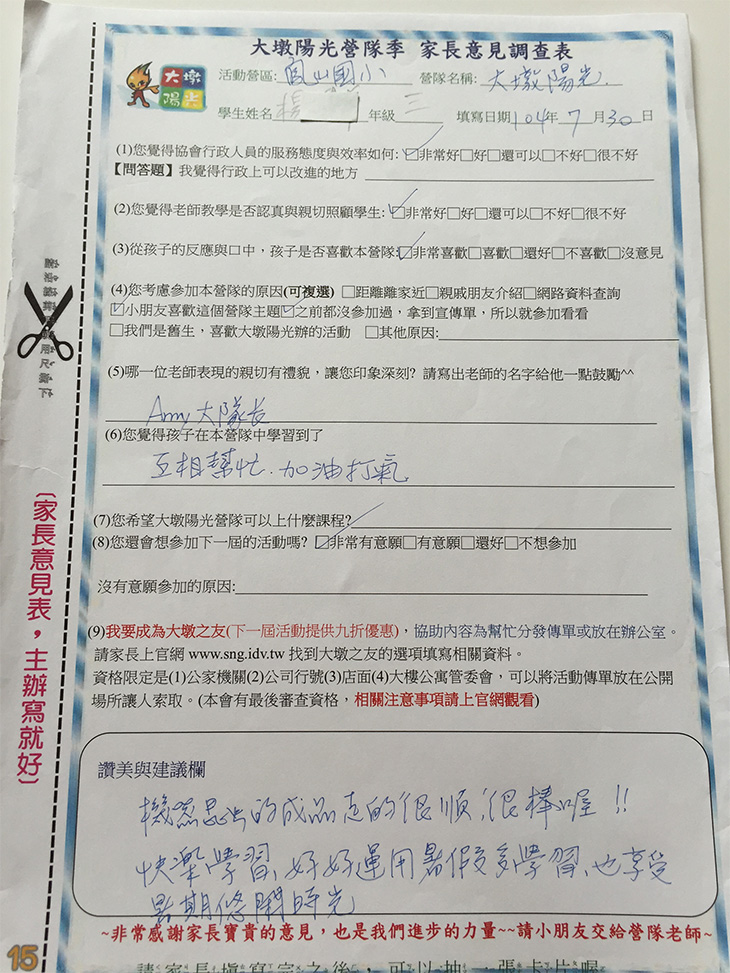 大墩陽光營隊季 家長意見調查表
大墩
陽光
活動營區: 國小 營隊名稱: 大墩陽光.
學生姓名 楊 年級 三 填寫日期 104年 7 月 30 日
(1)您覺得協會行政人員的服務態度與效率如何: ☑非常好□好□還可以□不好□很不好
【問答題】我覺得行政上可以改進的地方
(2)您覺得老師教學是否認真與親切照顧學生: ☑非常好□好□還可以□不好□很不好
(3)從孩子的反應與口中，孩子是否喜歡本營隊: ☑非常喜歡□喜歡□還好□不喜歡□沒意見
(4)您考慮參加本營隊的原因(可複選) □距離離家近□親戚朋友介紹□網路資料查詢
☑小朋友喜歡這個營隊主題☑之前都沒參加過，拿到宣傳單，所以就參加看看
□我們是舊生，喜歡大墩陽光辦的活動 □其他原因:
(5)哪一位老師表現的親切有禮貌，讓您印象深刻? 請寫出老師的名字給他一點鼓勵^^
Amy大隊長
(6)您覺得孩子在本營隊中學習到了
互相幫忙.加油打氣
(7)您希望大墩陽光營隊可以上什麼課程?
(8)您還會想參加下一屆的活動嗎? ☑非常有意願□有意願□還好□不想參加
沒有意願參加的原因:
(9)我要成為大墩之友(下一屆活動提供九折優惠)，協助內容為幫忙分發傳單或放在辦公室。
請家長上官網 www.sng.idv.tw 找到大墩之友的選項填寫相關資料。
資格限定是(1)公家機關(2)公司行號(3)店面(4)大樓公寓管委會，可以將活動傳單放在公開
場所讓人索取。(本會有最後審查資格，相關注意事項請上官網觀看)
讚美與建議欄
的成品走的很順，很棒喔!!
快樂學習、好好運用暑假多學習、也享受
暑期悠閒時光
~非常感謝家長寶貴的意見，也是我們進步的力量~~請小朋友交給營隊老師~
請家長填寫完之後，可以抽一張卡片喔
(家長意見表，主辦寫就好)
15